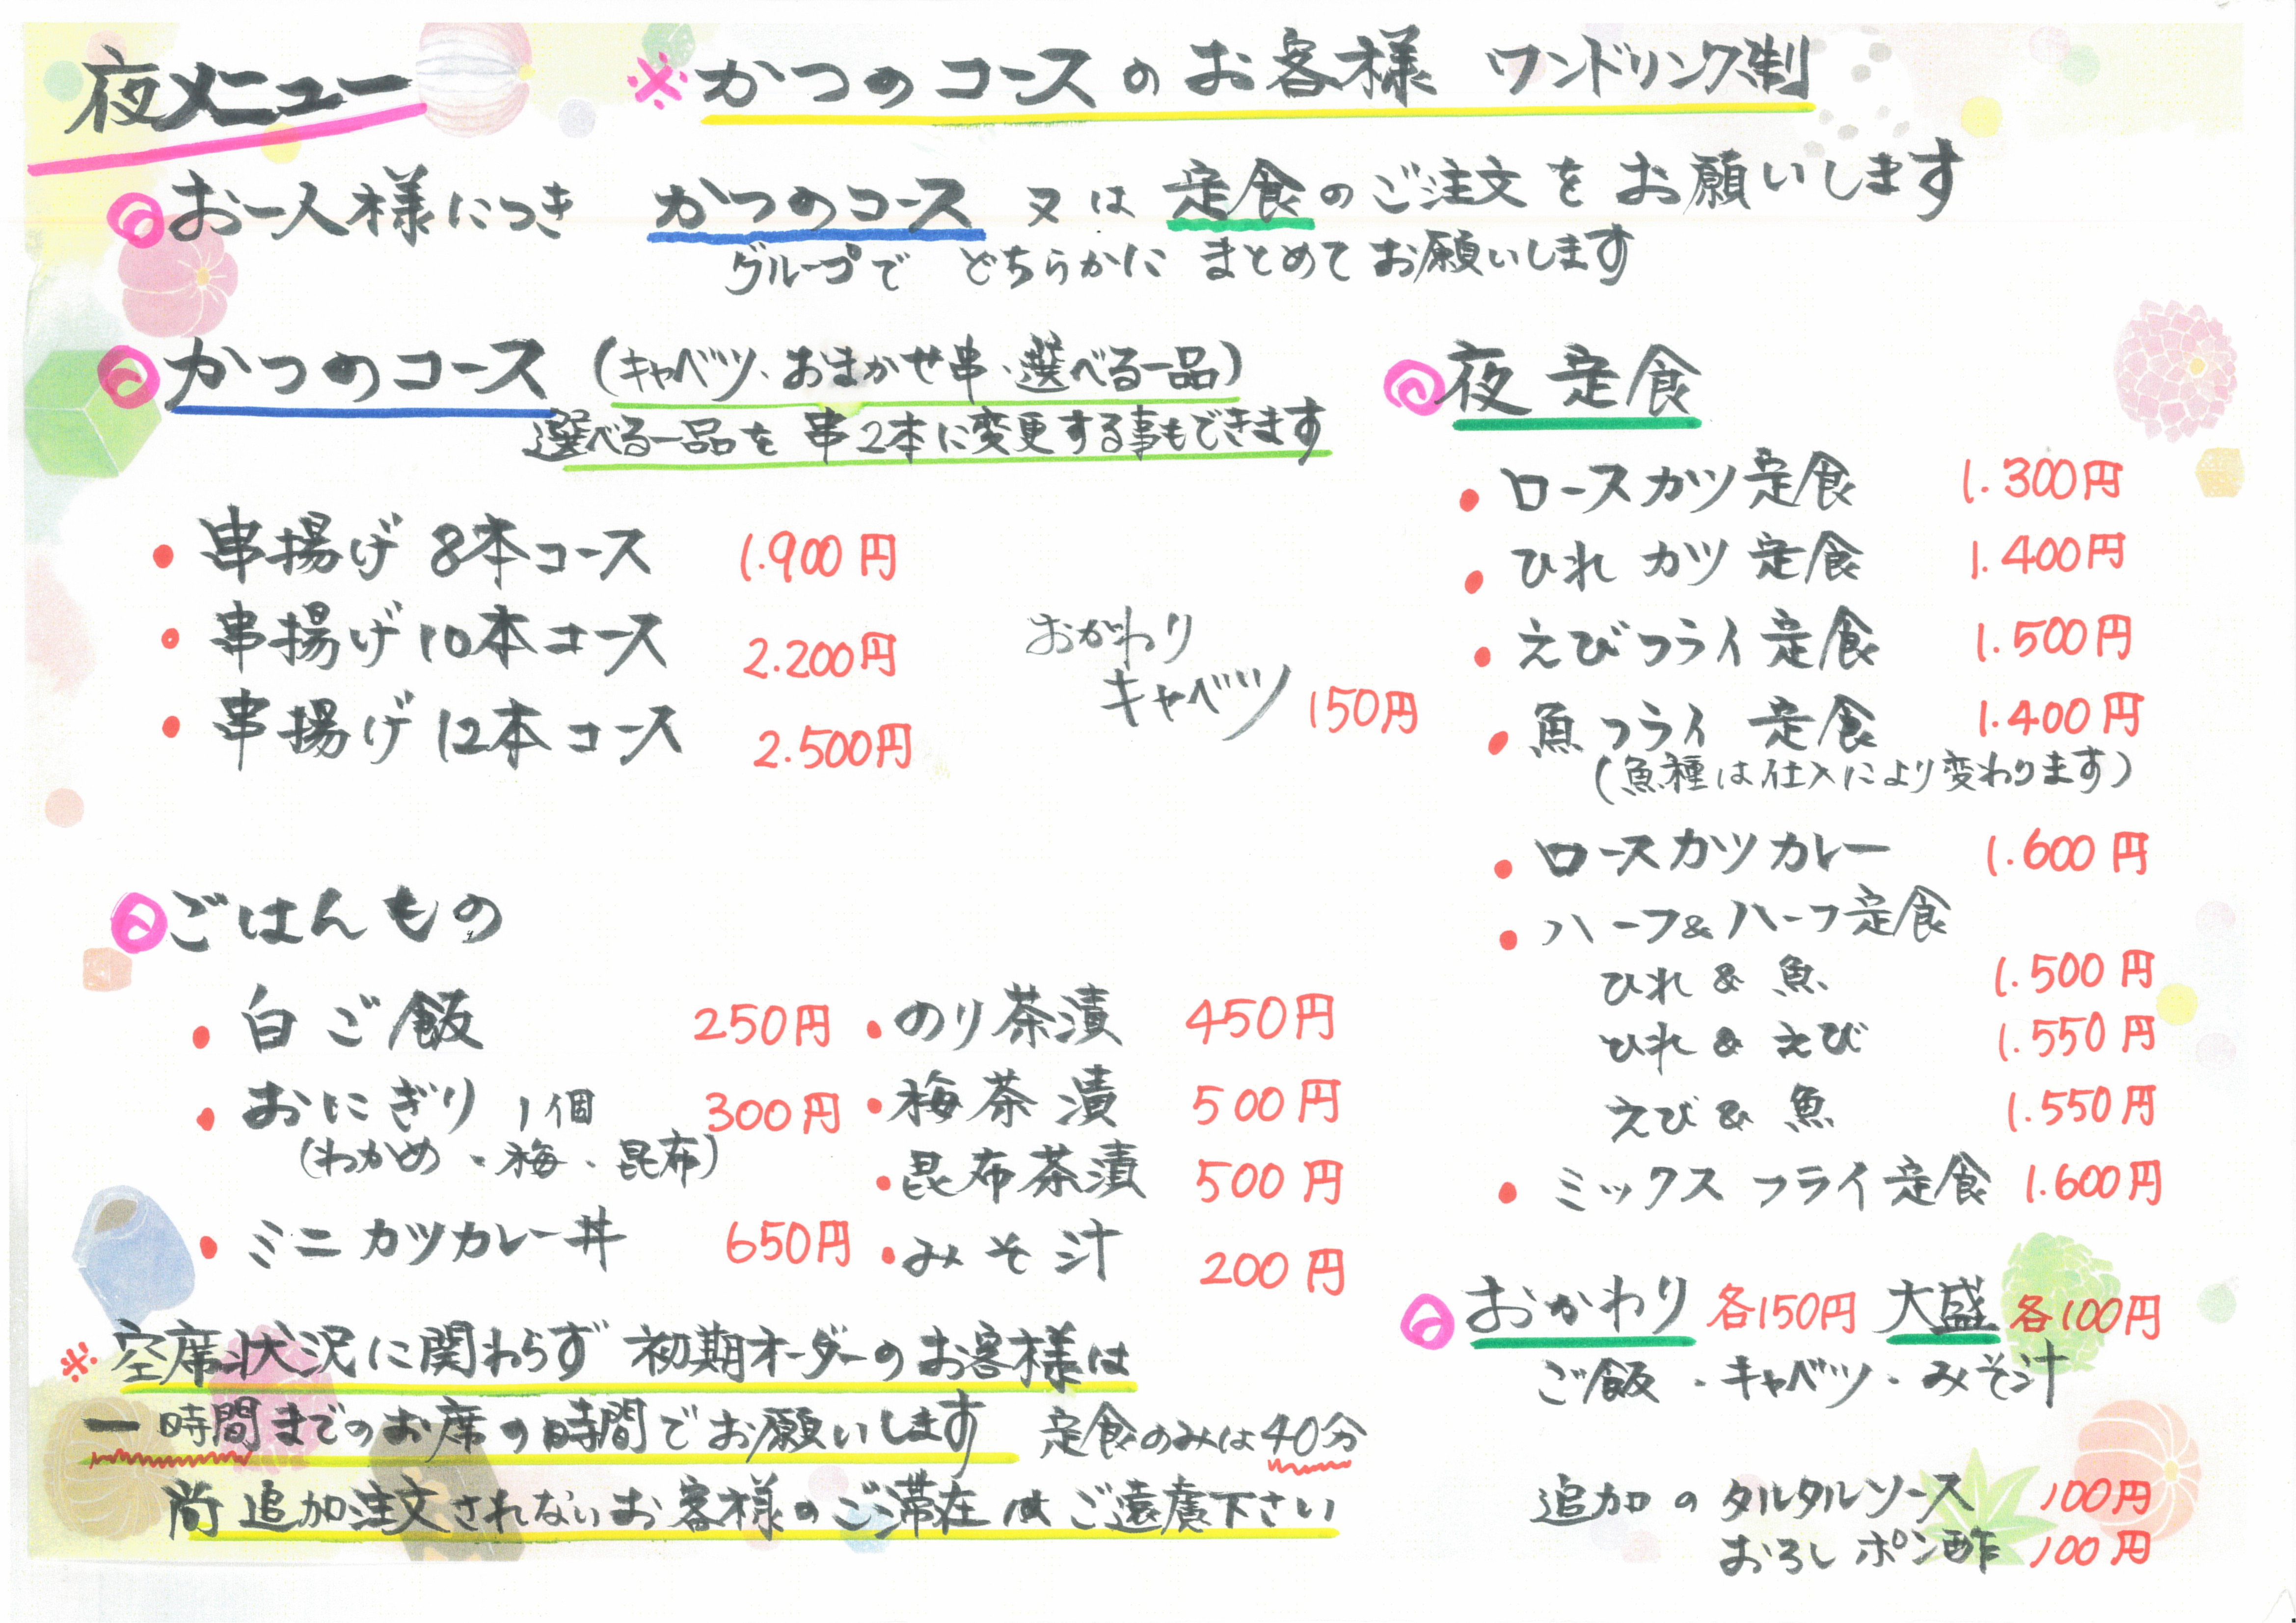 夜メニュー
※かつのコースのお客様 ワンドリンク制
お一人様につき かつのコース 又は 定食のご注文をお願いします
グループで どちらかに まとめてお願いします
かつのコース (キャベツ、おまかせ串・選べる一品)
選べる一品を 串2本に変更する事もできます
・串揚げ 8本コース 1.900円
・串揚げ 10本コース 2.200円
・串揚げ 12本コース 2.500円
おかわり
キャベツ 150円
ごはんもの
・白ご飯 250円
・おにぎり 1個 300円
(わかめ・梅・昆布)
・ミニカツカレー丼 650円
・のり茶漬 450円
・梅茶漬 500円
・昆布茶漬 500円
・みそ汁 200円
※空席状況に関わらず 初期オーダーのお客様は
一時間までのお席の時間でお願いします 定食のみは40分
尚 追加注文されないお客様のご滞在はご遠慮下さい
夜定食
・ロースカツ定食 1.300円
・ひれカツ定食 1.400円
・えびフライ定食 1.500円
・魚フライ定食 1.400円
(魚種は仕入により変わります)
・ロースカツカレー 1.600円
・ハーフ&ハーフ定食
ひれ & 魚 1.500円
ひれ & えび 1.550円
えび & 魚 1.550円
・ミックスフライ定食 1.600円
おかわり 各150円 大盛 各100円
ご飯・キャベツ・みそ汁
追加の タルタルソース 100円
おろしポン酢 100円